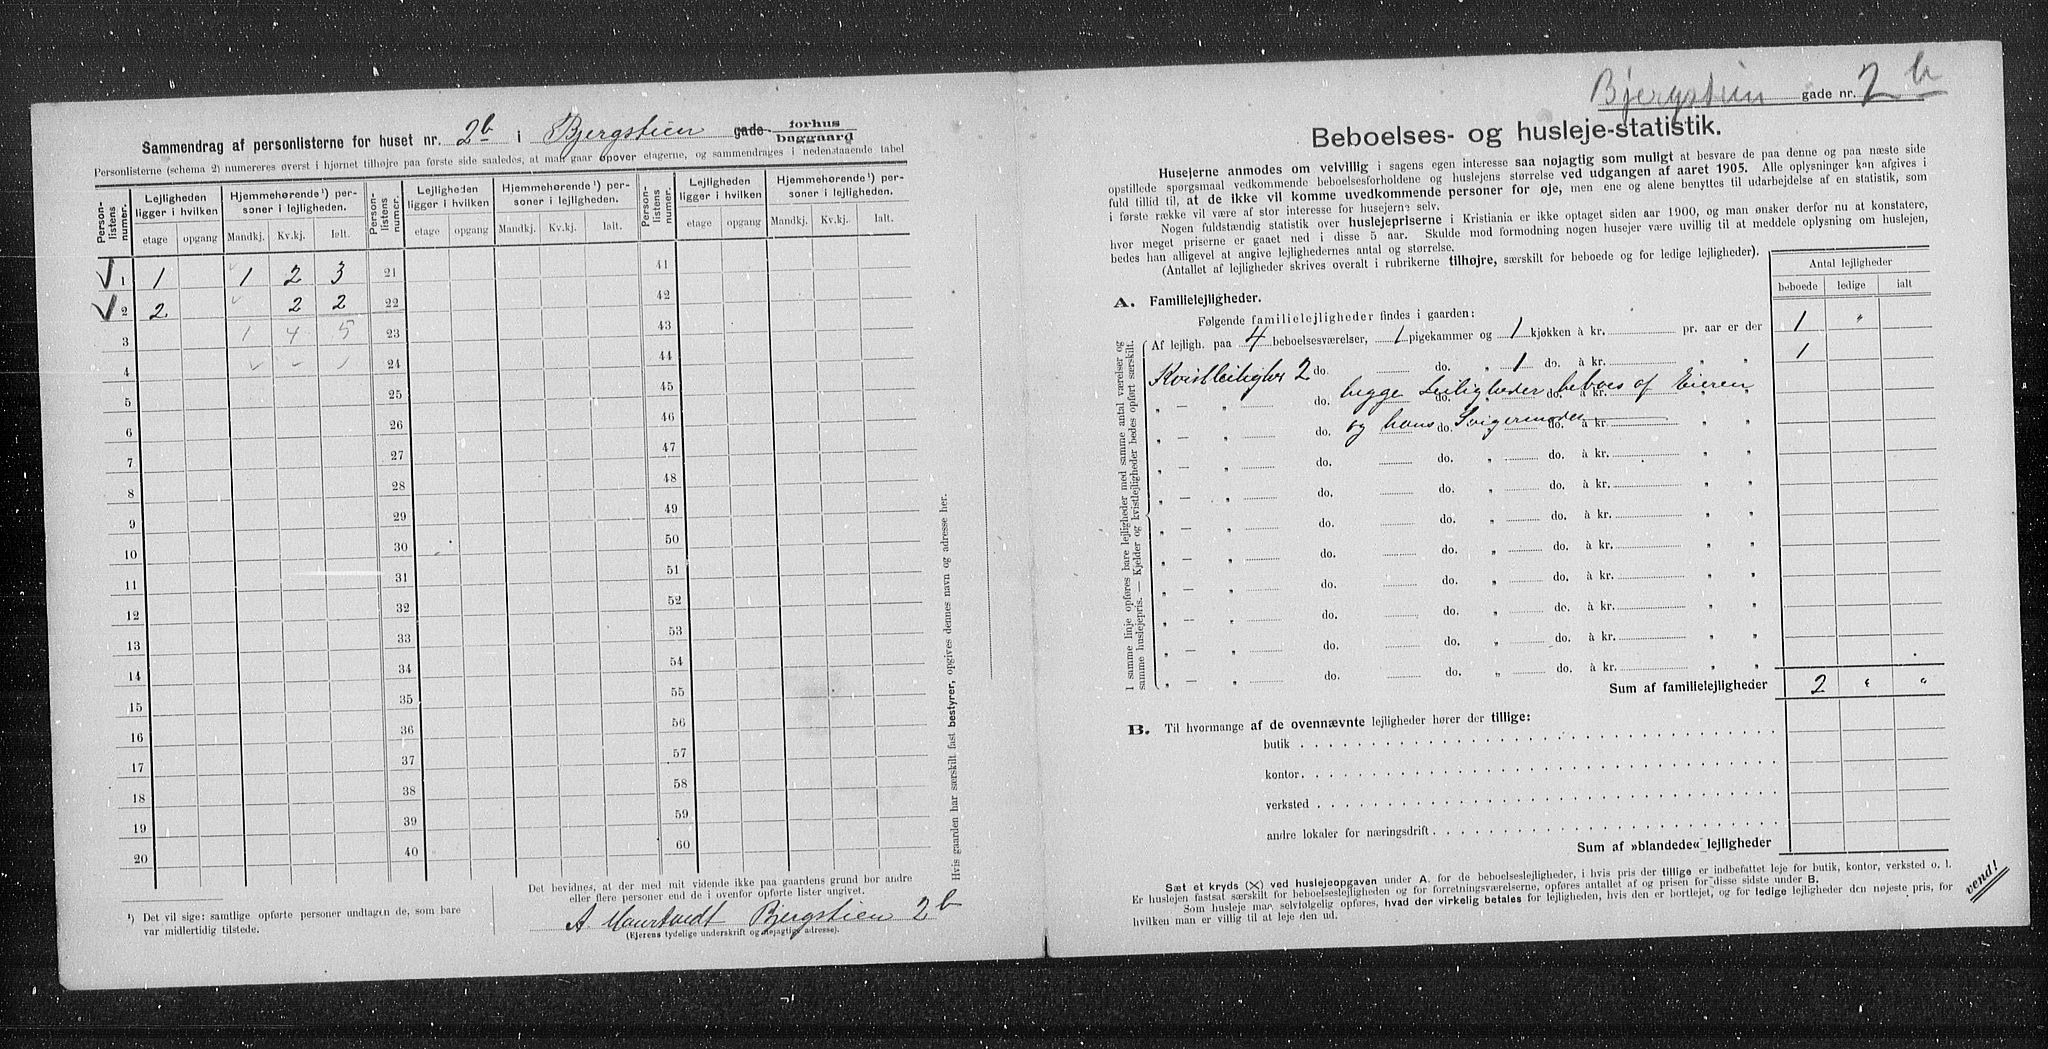 Sammendrag af personlisterne for huset nr. 2b i Bjergstien gade forhus baggaard
Personlisterne (schema 2) numereres øverst i hjørnet tilhøjre paa første side saaledes, at man gaar opover etagerne, og sammendrages i nedenstaaende tabel
Person-listens numer. Lejligheden ligger i hvilken Hjemmehørende¹) personer i lejligheden. Person-listens numer. Lejligheden ligger i hvilken Hjemmehørende¹) personer i lejligheden. Person-listens numer. Lejligheden ligger i hvilken Hjemmehørende¹) personer i lejligheden.
etage opgang Mandkj. Kv.kj. Ialt. etage opgang Mandkj. Kv.kj. Ialt. etage opgang Mandkj. Kv.kj. Ialt.
√ 1 1 1 2 3 21 41
√ 2 2 2 2 22 42
3 1 4 5 23 43
4 24 44
5 25 45
6 26 46
7 27 47
8 28 48
9 29 49
10 30 50
11 31 51
12 32 52
13 33 53
14 34 54
15 35 55
16 36 56
17 37 57
18 38 58
19 39 59
20 40 60
¹) Det vil sige: samtlige opførte personer undtagen de, som bare
var midlertidig tilstede.
Det bevidnes, at der med mit vidende ikke paa gaardens grund bor andre
eller flere personer end de i ovenfor opførte lister angivet.
A. Bjergstien 2b
(Ejerens tydelige underskrift og nøjagtige adresse).
Hvis gaarden har særskilt fast bestyrer, opgives dennes navn og adresse her.
Bjergstien gade nr. 2b
Beboelses- og husleje-statistik.
Husejerne anmodes om velvillig i sagens egen interesse saa nøjagtig som muligt at besvare de paa denne og paa næste side
opstillede spørgsmaal vedkommende beboelsesforholdene og huslejens størrelse ved udgangen af aaret 1905. Alle oplysninger kan afgives i
fuld tillid til, at de ikke vil komme uvedkommende personer for øje, men ene og alene benyttes til udarbejdelse af en statistik, som
i første række vil være af stor interesse for husejerne selv.
Nogen fuldstændig statistik over huslejepriserne i Kristiania er ikke optaget siden aar 1900, og man ønsker derfor nu at konstatere,
hvor meget priserne er gaaet ned i disse 5 aar. Skulde mod formodning nogen husejer være uvillig til at meddele oplysning om huslejen,
bedes han alligevel at angive lejlighedernes antal og størrelse.
(Antallet af lejligheder skrives overalt i rubrikerne tilhøjre, særskilt for beboede og for ledige lejligheder).
Antal lejligheder
beboede ledige ialt
A. Familielejligheder.
Følgende familielejligheder findes i gaarden:
I samme linje opføres bare lejligheder med samme antal værelser og
samme huslejepris. — Kjelder og kvistlejligheder bedes opført særskilt.
Af lejligh. paa 4 beboelsesværelser, 1 pigekammer og 1 kjøkken à kr. pr. aar er der 1 "
Kvistleilighe 2 do. do. 1 do. à kr. " " 1
" — " do. do. " do. à kr. " "
begge Leiligheder beboes af Eieren
" — " do. do. " do. à kr. " "
og hans Svigermoder
" — " do. do. " do. à kr. " "
" — " do. do. " do. à kr. " "
" — " do. do. " do. à kr. " "
" — " do. do. " do. à kr. " "
" — " do. do. " do. à kr. " "
" — " do. do. " do. à kr. " "
" — " do. do. " do. à kr. " "
" — " do. do. " do. à kr. " "
Sum af familielejligheder 2 " "
B. Til hvormange af de ovennævnte lejligheder hører der tillige:
butik
kontor
verksted
andre lokaler for næringsdrift
Sum af »blandede« lejligheder
Sæt et kryds (×) ved huslejeopgaven under A. for de beboelseslejligheder, i hvis pris der tillige er indbefattet leje for butik, kontor, verksted o. l.
Er huslejen fastsat særskilt for beboelseslejligheden og for forretningsværelserne, opføres antallet af og prisen for disse sidste under B.
Som husleje maa selvfølgelig opføres, hvad der virkelig betales for lejligheden, hvis den er bortlejet, og for ledige lejligheder den nøjeste pris, for
hvilken man er villig til at leje den ud.
vend!